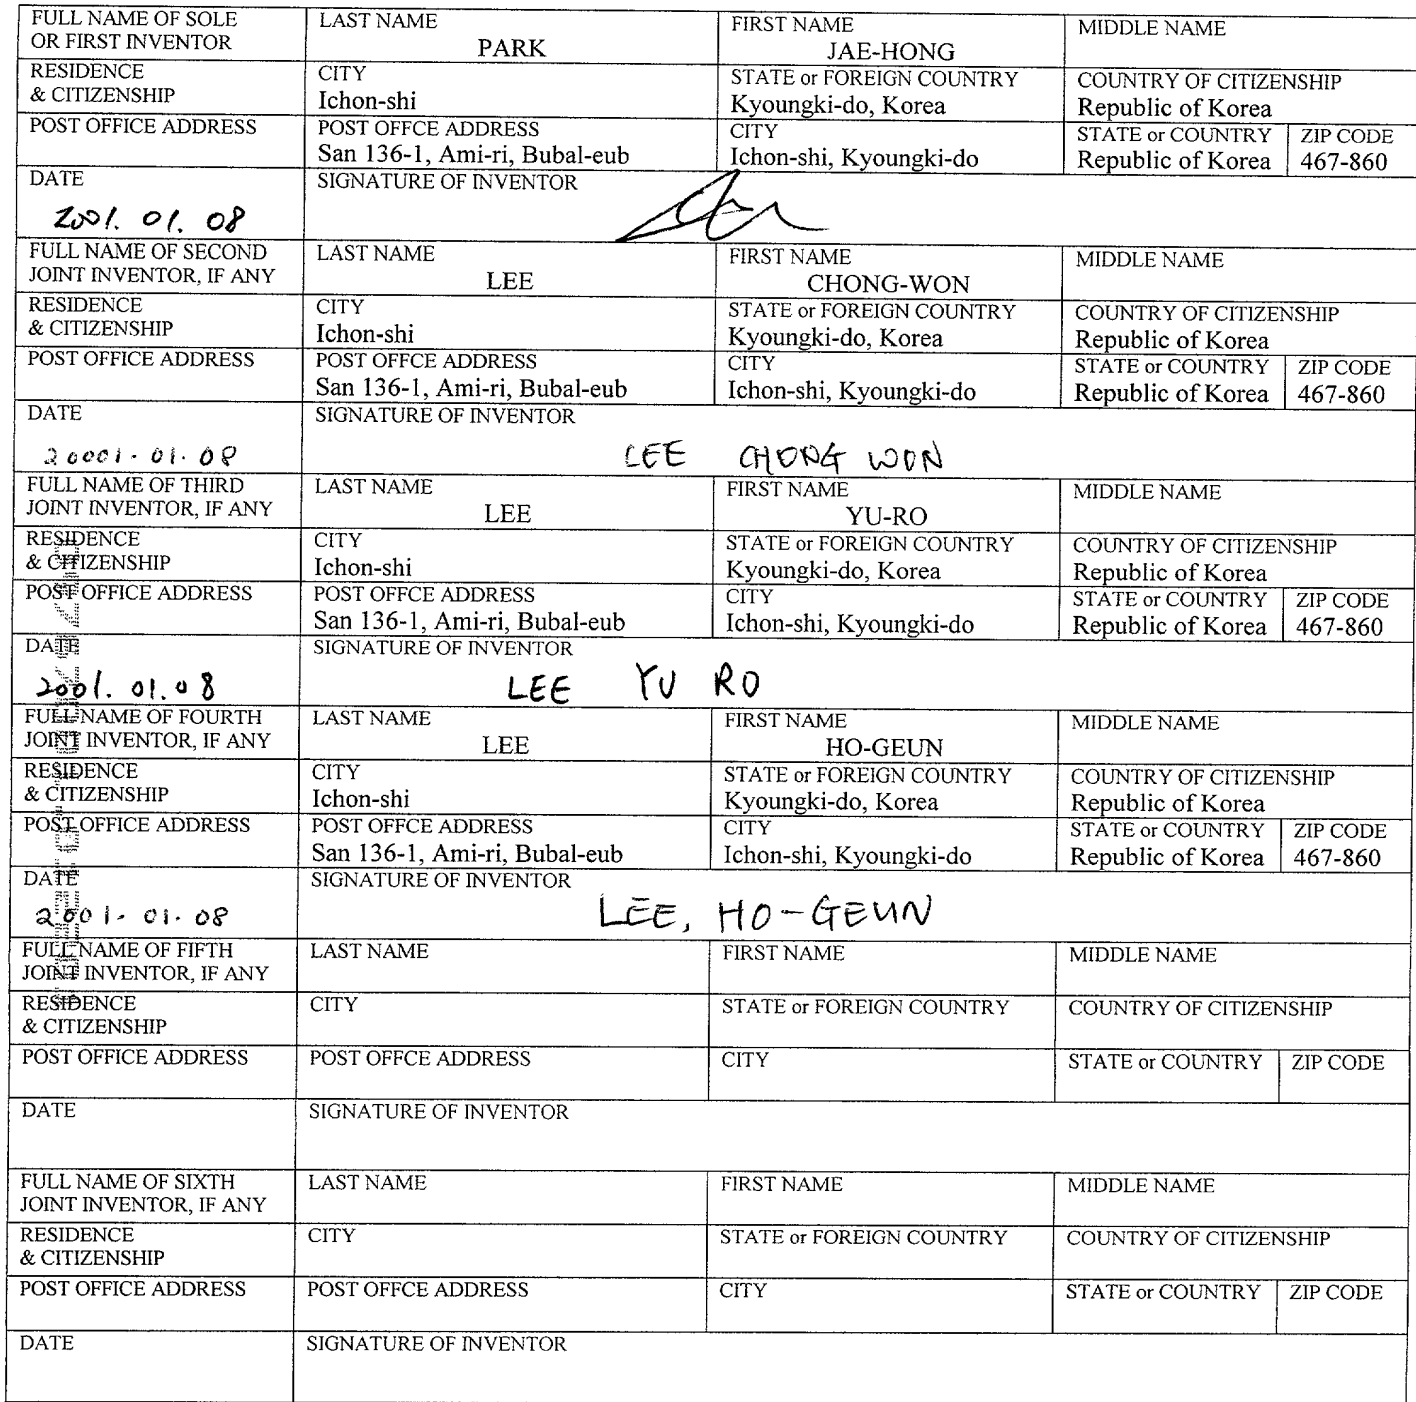 FULL NAME OF SOLE OR FIRST INVENTOR LAST NAME PARK FIRST NAME JAE-HONG MIDDLE NAME
RESIDENCE & CITIZENSHIP CITY Ichon-shi STATE or FOREIGN COUNTRY Kyoungki-do, Korea COUNTRY OF CITIZENSHIP Republic of Korea
POST OFFICE ADDRESS POST OFFCE ADDRESS San 136-1, Ami-ri, Bubal-eub CITY Ichon-shi, Kyoungki-do STATE or COUNTRY Republic of Korea ZIP CODE 467-860
DATE 2001. 01. 08 SIGNATURE OF INVENTOR
FULL NAME OF SECOND JOINT INVENTOR, IF ANY LAST NAME LEE FIRST NAME CHONG-WON MIDDLE NAME
RESIDENCE & CITIZENSHIP CITY Ichon-shi STATE or FOREIGN COUNTRY Kyoungki-do, Korea COUNTRY OF CITIZENSHIP Republic of Korea
POST OFFICE ADDRESS POST OFFCE ADDRESS San 136-1, Ami-ri, Bubal-eub CITY Ichon-shi, Kyoungki-do STATE or COUNTRY Republic of Korea ZIP CODE 467-860
DATE 20001.01.08 SIGNATURE OF INVENTOR LEE CHONG WON
FULL NAME OF THIRD JOINT INVENTOR, IF ANY LAST NAME LEE FIRST NAME YU-RO MIDDLE NAME
RESIDENCE & CITIZENSHIP CITY Ichon-shi STATE or FOREIGN COUNTRY Kyoungki-do, Korea COUNTRY OF CITIZENSHIP Republic of Korea
POST OFFICE ADDRESS POST OFFCE ADDRESS San 136-1, Ami-ri, Bubal-eub CITY Ichon-shi, Kyoungki-do STATE or COUNTRY Republic of Korea ZIP CODE 467-860
DATE 2001. 01. 08 SIGNATURE OF INVENTOR LEE YU RO
FULL NAME OF FOURTH JOINT INVENTOR, IF ANY LAST NAME LEE FIRST NAME HO-GEUN MIDDLE NAME
RESIDENCE & CITIZENSHIP CITY Ichon-shi STATE or FOREIGN COUNTRY Kyoungki-do, Korea COUNTRY OF CITIZENSHIP Republic of Korea
POST OFFICE ADDRESS POST OFFCE ADDRESS San 136-1, Ami-ri, Bubal-eub CITY Ichon-shi, Kyoungki-do STATE or COUNTRY Republic of Korea ZIP CODE 467-860
DATE 2001. 01. 08 SIGNATURE OF INVENTOR LEE, HO-GEUN
FULL NAME OF FIFTH JOINT INVENTOR, IF ANY LAST NAME FIRST NAME MIDDLE NAME
RESIDENCE & CITIZENSHIP CITY STATE or FOREIGN COUNTRY COUNTRY OF CITIZENSHIP
POST OFFICE ADDRESS POST OFFCE ADDRESS CITY STATE or COUNTRY ZIP CODE
DATE SIGNATURE OF INVENTOR
FULL NAME OF SIXTH JOINT INVENTOR, IF ANY LAST NAME FIRST NAME MIDDLE NAME
RESIDENCE & CITIZENSHIP CITY STATE or FOREIGN COUNTRY COUNTRY OF CITIZENSHIP
POST OFFICE ADDRESS POST OFFCE ADDRESS CITY STATE or COUNTRY ZIP CODE
DATE SIGNATURE OF INVENTOR